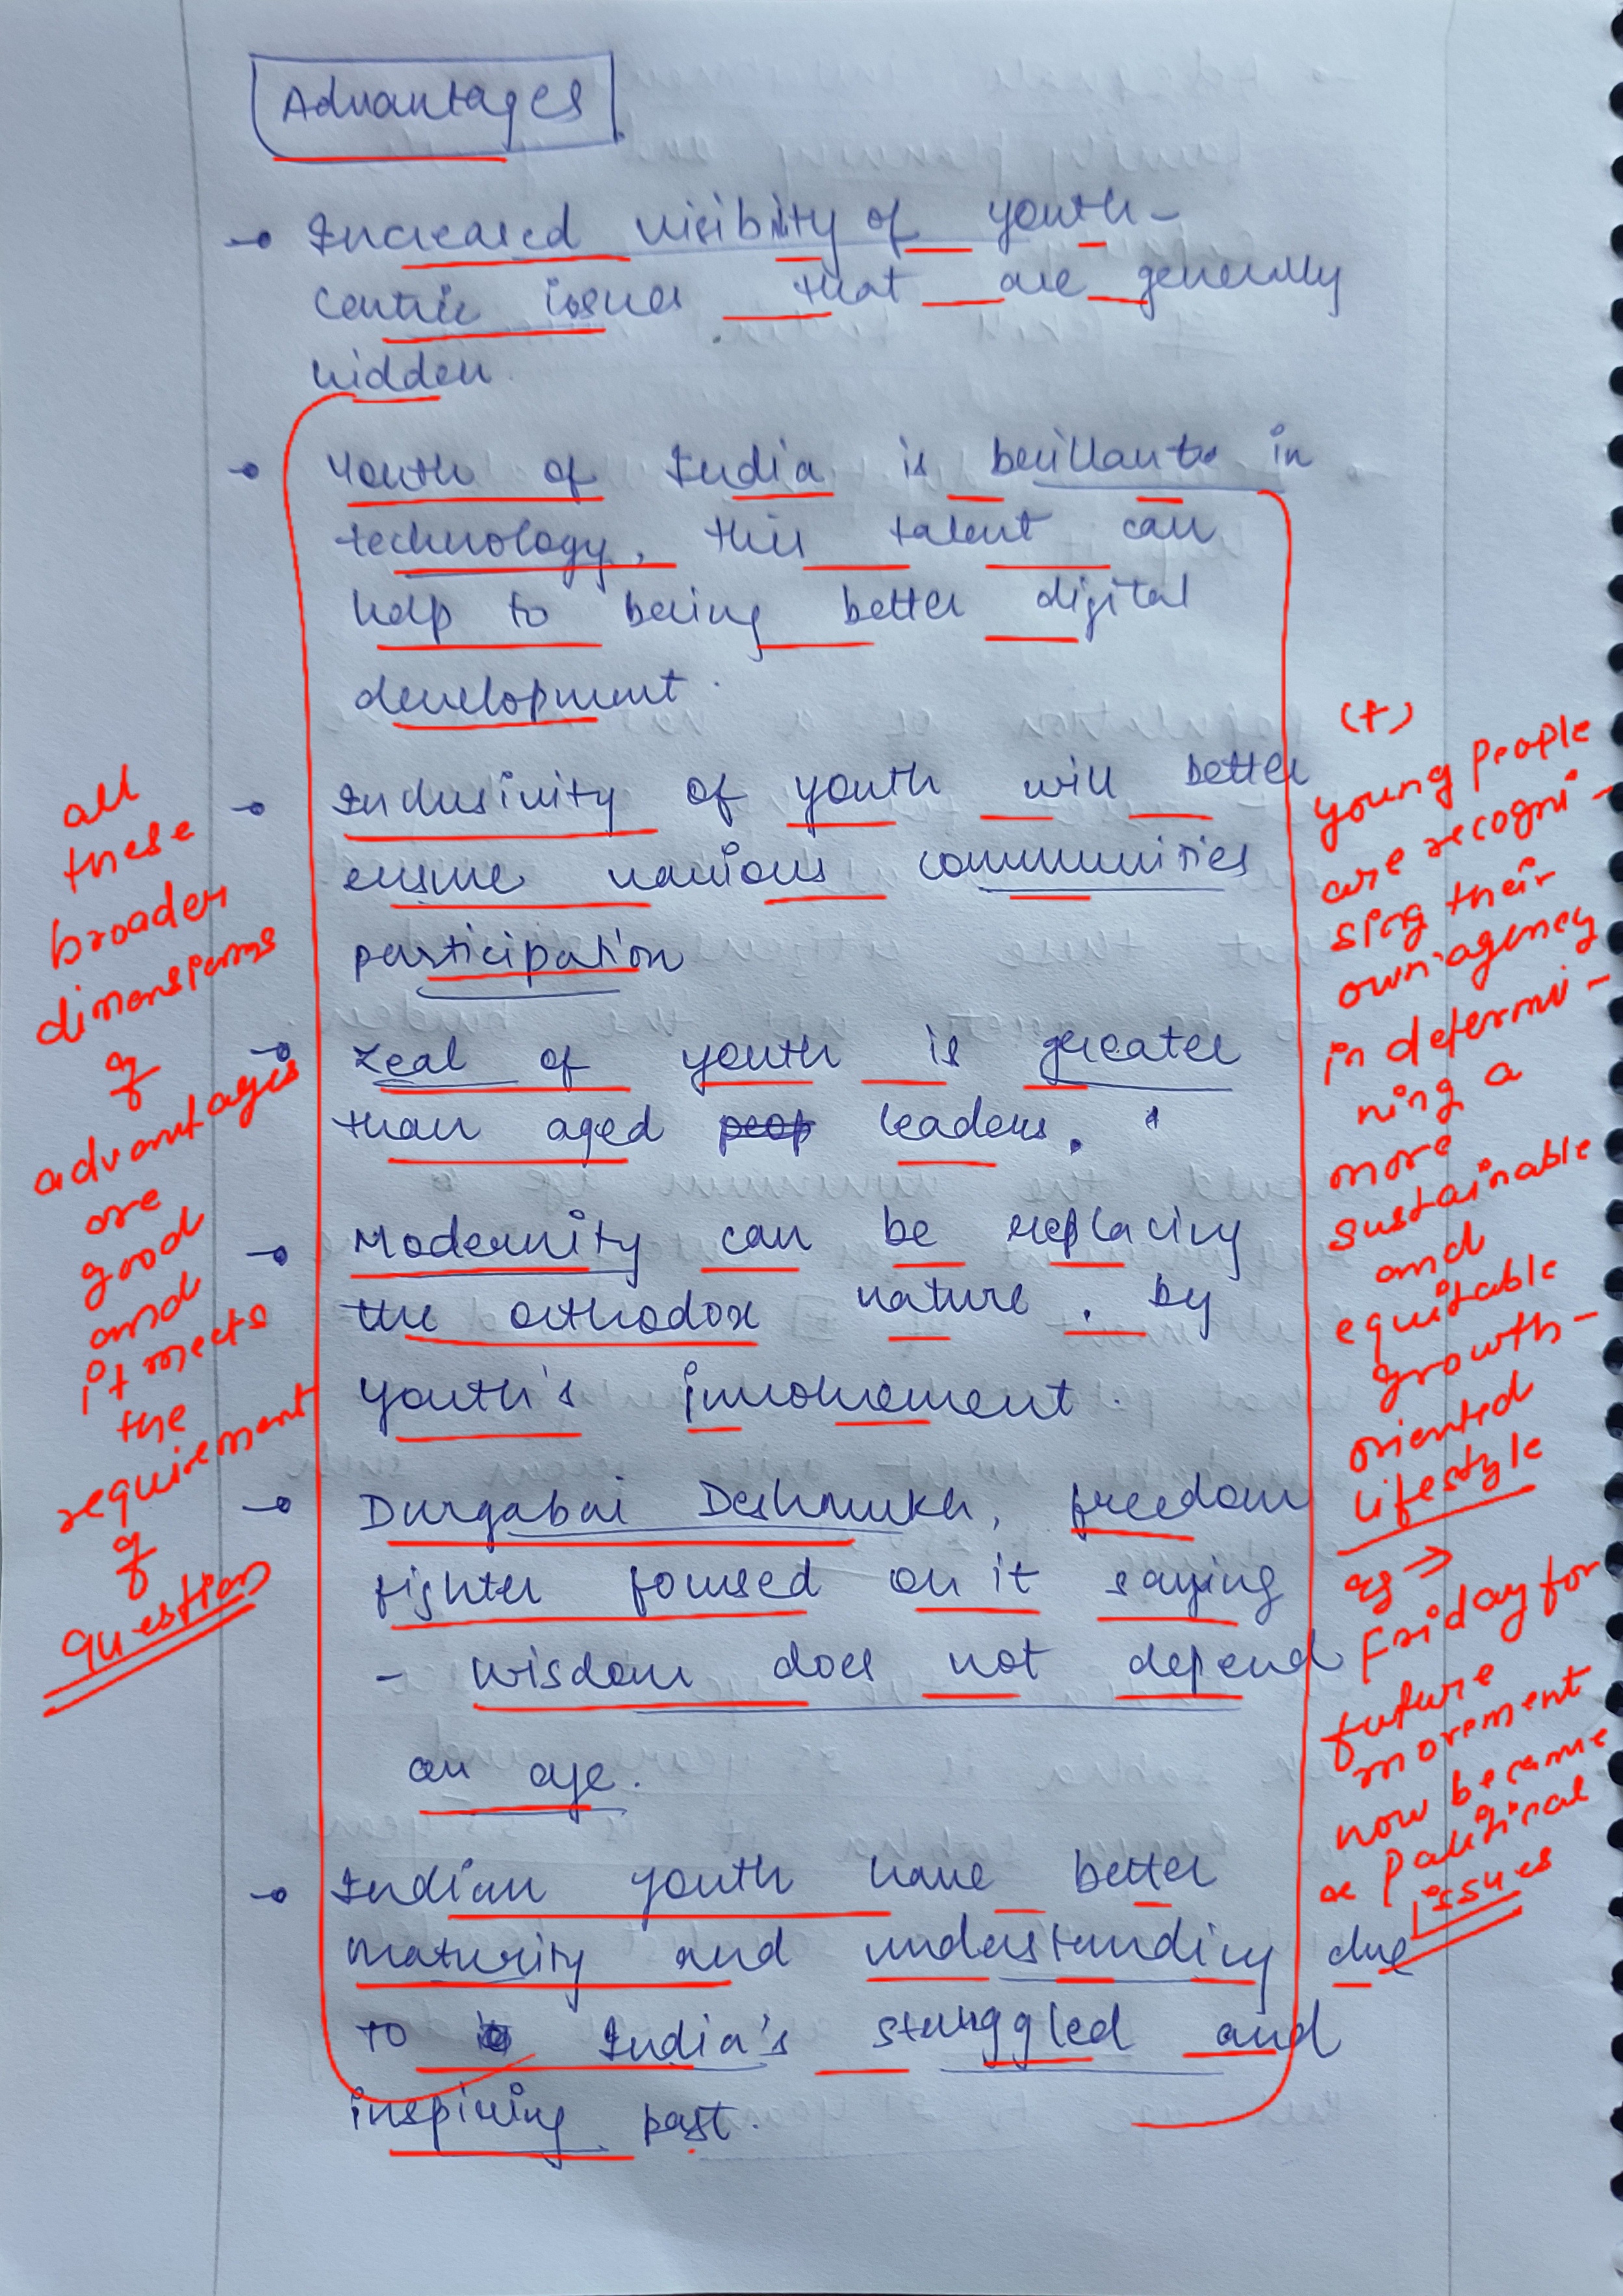 Advantages
→ Increased visibility of youth-
centric issues that are generally
hidden.
→ Youth of India is brillante in
technology, this talent can
help to bering better digital
development.
→ Inclusivity of youth will better
ensure various communities
participation
→ Zeal of youth is greater
than aged peop leaders.
→ Modernity can be replacing
the orthodox nature, by
youth's involvement.
→ Durgabai Deshmukh, freedom
fighter focused on it saying
- wisdom does not depend
on age.
→ Indian youth have better
maturity and understanding due
to India's struggled and
inspiring past.
all
these
broader
dimensions
of
advantages
are
good
and
it meets
the
requirement
of
question
(+)
young people
are recogni-
sing their
own agency
in determi-
ning a
more
sustainable
and
equitable
growth-
oriented
lifestyle
eg ⇒
Friday for
future
movement
now became
a Political
issues